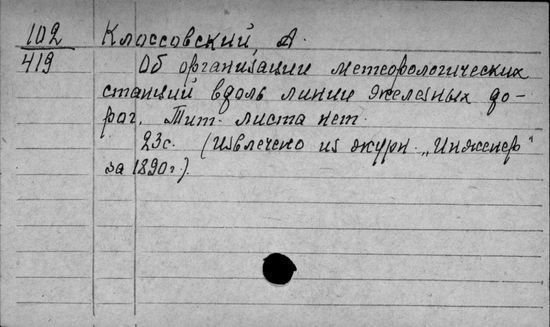 102 Клоссовский, А.
419 Об организации метеорологических
станций вдоль линии железных до-
рог. Тит. листа нет.
23с. (Извлечено из журн. „Инженер"
за 1890г.).